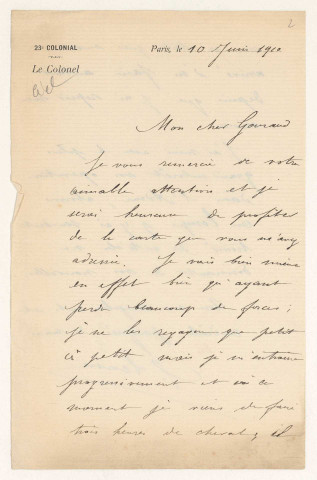 2
23e COLONIAL
Le Colonel
Paris, le 10 Juin 1910
Mon cher Gouraud
Je vous remercie de votre
aimable attention et je
serai heureux de profiter
de la carte que vous m'avez
adressée. Je vais bien mieux
en effet bien qu'ayant
perdu beaucoup de forces ;
je ne les regagne que petit
à petit mais je m'entraîne
progressivement et en ce
moment je viens de faire
trois heures de cheval, et